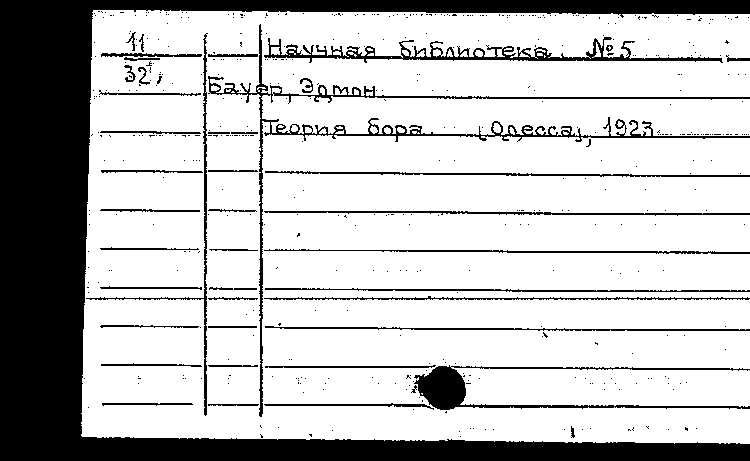 11
32,
Научная библиотека. №5
Бауер, Эдмон.
Теория бора. [Одесса], 1923